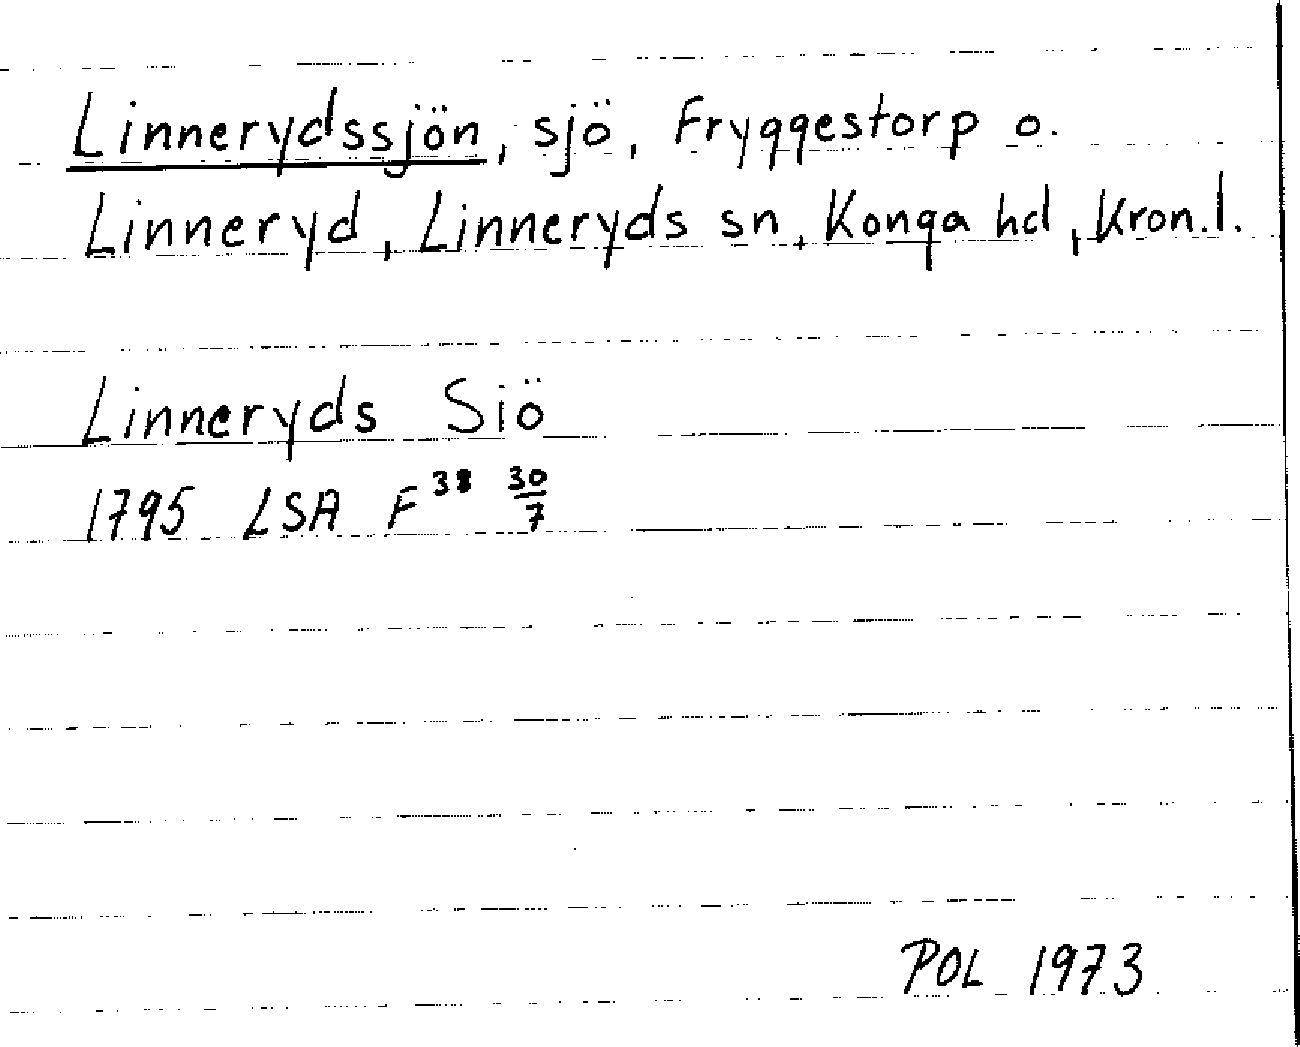 Linnerydssjön, sjö, Fryggestorp o.
Linneryd, Linneryds sn, Konga hd, Kron.l.
Linneryds Siö
1795 LSA F 38 30/7
POL 1973